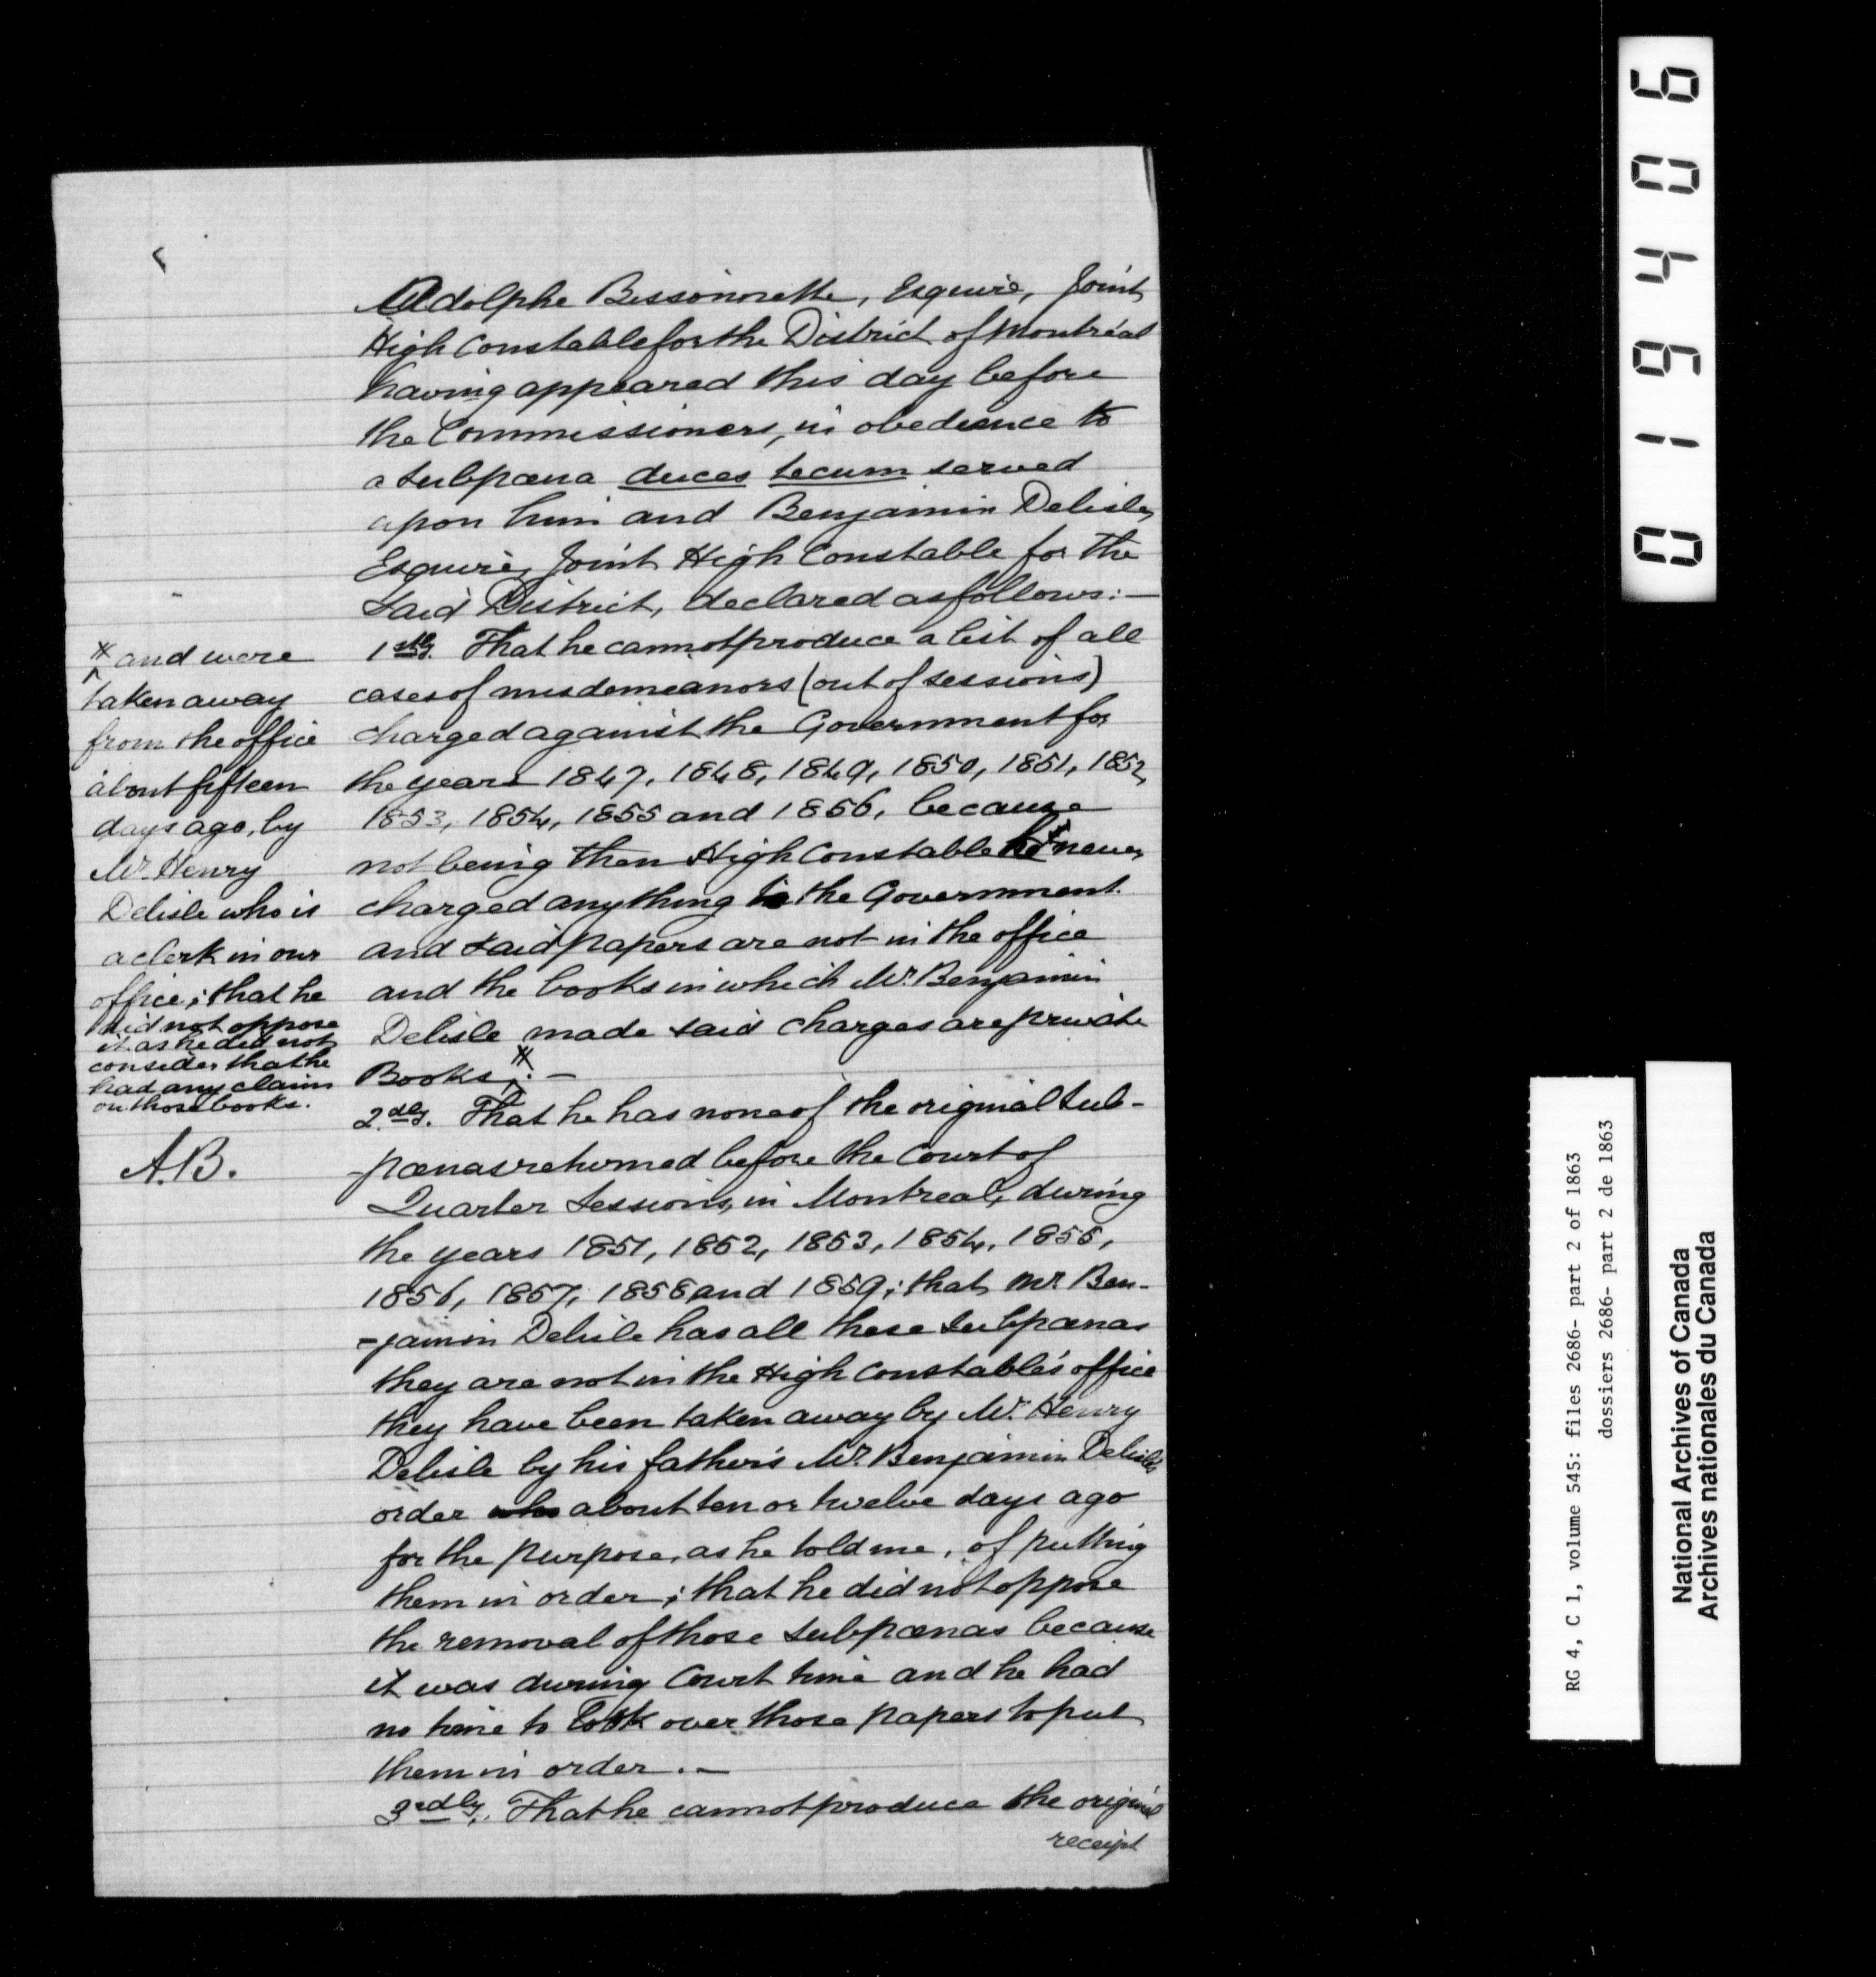 Adolphe Bissonnette, Esquire, Joint
High Constable for the District of Montréal
having appeared this day before
the Commissioners, in obedience to
a subpœna duces tecum served
upon him and Benjamin Delisle,
Esquire, Joint High Constable for the
said District, declared as follows:—
1stly. That he cannot produce a list of all
cases of misdemeanors (out of sessions)
charged against the Government for
the years 1847, 1848, 1849, 1850, 1851, 1852,
1853, 1854, 1855 and 1856, because
not being then High Constable he never
charged anything to the Government
and said papers are not in the office
and the books in which Mr. Benjamin
Delisle made said charges are private
Books.—
※ and were
taken away
from the office
about fifteen
days ago, by
Mr. Henry
Delisle who is
a clerk in our
office; that he
did not oppose
it as he did not
consider that he
had any claim
on those books.
A.B.
2dly. That he has none of the original sub-
-pœnas returned before the Court of
Quarter Sessions, in Montreal, during
the years 1851, 1852, 1853, 1854, 1855,
1856, 1857, 1858 and 1859; that Mr. Ben-
-jamin Delisle has all these subpœnas
they are not in the High Constable's office
they have been taken away by Mr. Henry
Delisle by his father's Mr. Benjamin Delisle's
order who about ten or twelve days ago
for the purpose, as he told me, of putting
them in order; that he did not oppose
the removal of those subpœnas because
it was during Court time and he had
no time to look over those papers to put
them in order.—
3rdly. That he cannot produce the original
receipt
019406
RG 4, C 1, volume 545: files 2686- part 2 of 1863
dossiers 2686- part 2 de 1863
National Archives of Canada
Archives nationales du Canada